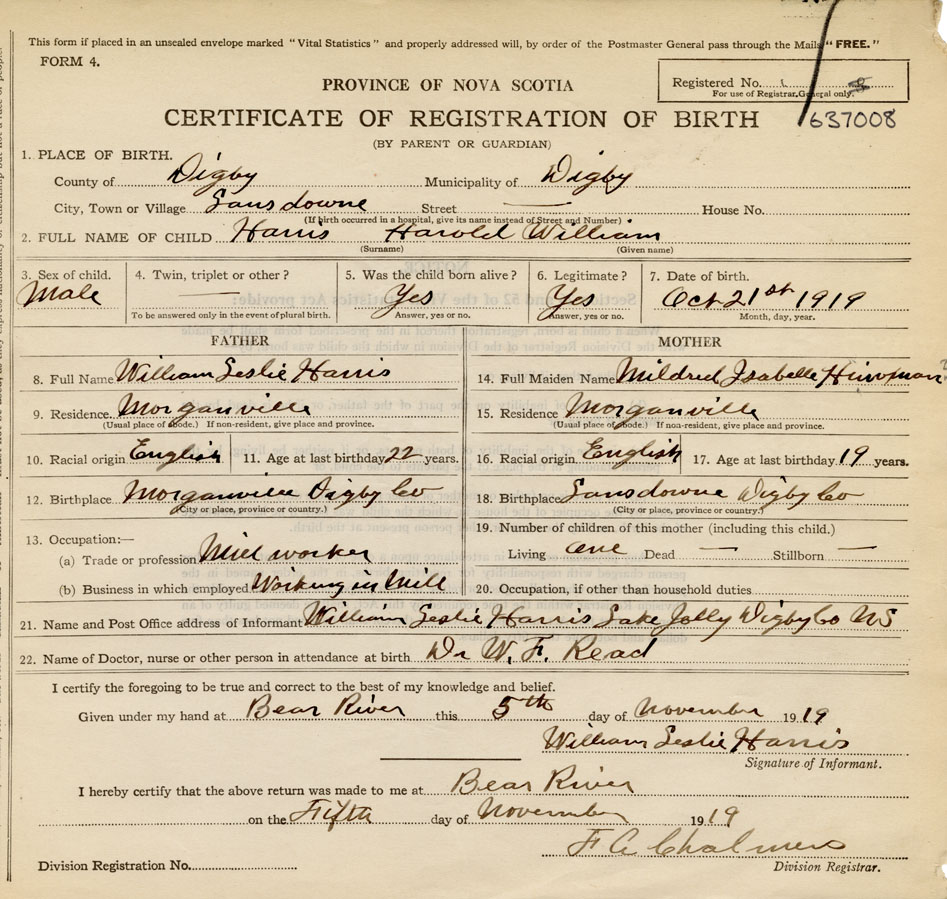 This form if placed in an unsealed envelope marked "Vital Statistics" and properly addressed will, by order of the Postmaster General pass through the Mails "FREE."
FORM 4.
PROVINCE OF NOVA SCOTIA
Registered No.
For use of Registrar General only.
CERTIFICATE OF REGISTRATION OF BIRTH
637008
(BY PARENT OR GUARDIAN)
1. PLACE OF BIRTH.
County of Digby Municipality of Digby
City, Town or Village Lansdowne Street — House No.
(If birth occurred in a hospital, give its name instead of Street and Number)
2. FULL NAME OF CHILD Harris Harold William
(Surname) (Given name)
3. Sex of child. 4. Twin, triplet or other? 5. Was the child born alive? 6. Legitimate? 7. Date of birth.
Male — Yes Yes Oct 21st 1919
To be answered only in the event of plural birth. Answer, yes or no. Answer, yes or no. Month, day, year.
FATHER
8. Full Name William Leslie Harris
9. Residence. Morganville
(Usual place of abode.) If non-resident, give place and province.
10. Racial origin English 11. Age at last birthday 22 years.
12. Birthplace Morganville Digby Co
(City or place, province or country.)
13. Occupation:—
(a) Trade or profession Mill worker
(b) Business in which employed Working in Mill
MOTHER
14. Full Maiden Name Mildred Isabelle
15. Residence Morganville
(Usual place of abode.) If non-resident, give place and province.
16. Racial origin English 17. Age at last birthday 19 years.
18. Birthplace Lansdowne Digby Co
(City or place, province or country.)
19. Number of children of this mother (including this child.)
Living one Dead — Stillborn —
20. Occupation, if other than household duties
21. Name and Post Office address of Informant William Leslie Harris Lake Jolly Digby Co NS
22. Name of Doctor, nurse or other person in attendance at birth Dr W. F. Read
I certify the foregoing to be true and correct to the best of my knowledge and belief.
Given under my hand at Bear River this 5th day of November 1919
William Leslie Harris
Signature of Informant.
I hereby certify that the above return was made to me at Bear River
on the Fifth day of November 1919
F A Chalmers
Division Registration No. Division Registrar.